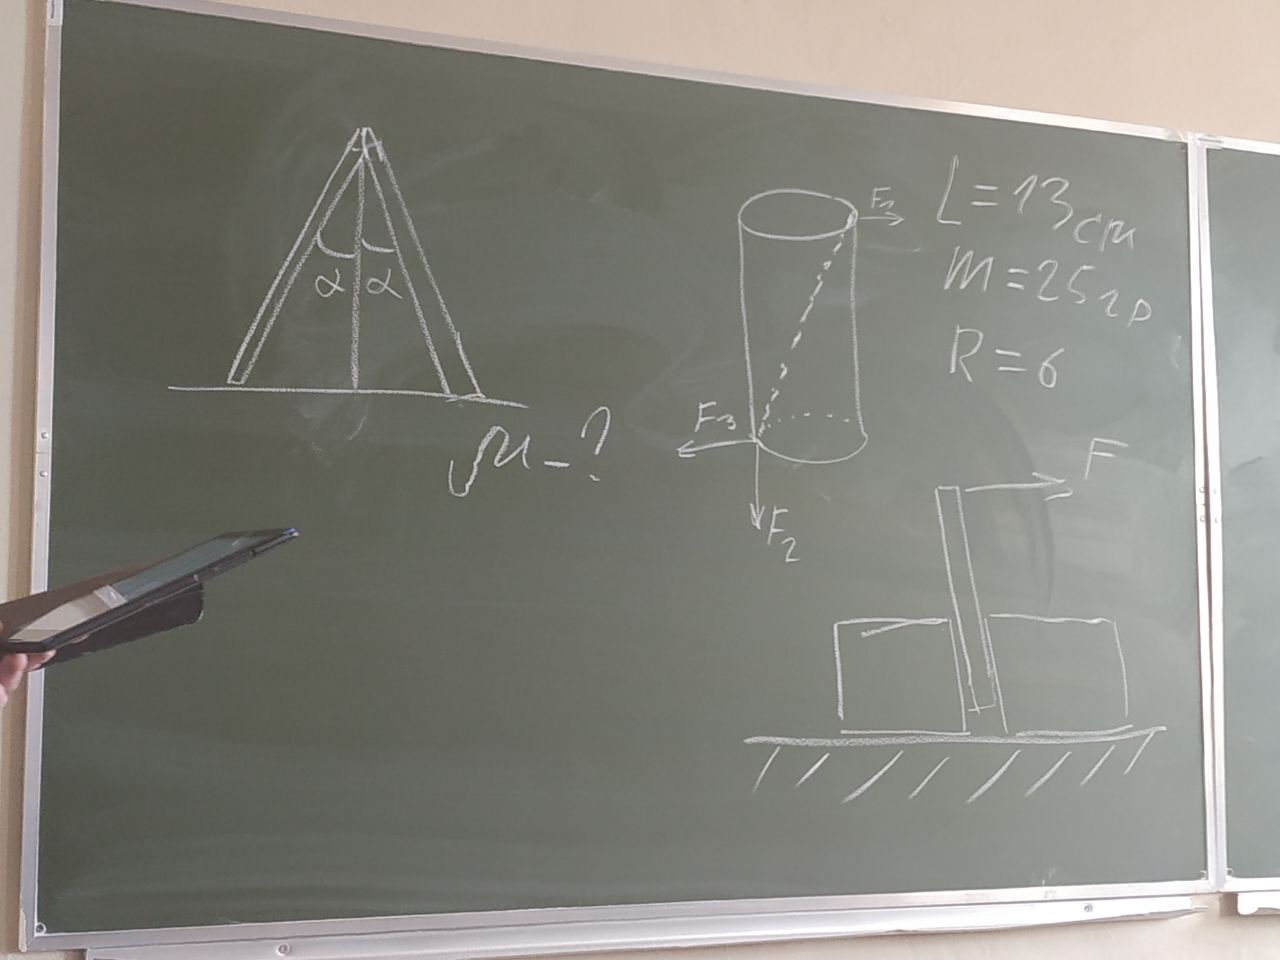 α α
μ - ?
F₁
F₃
F₂
L = 13 см
m = 25 гр
R = 6
F